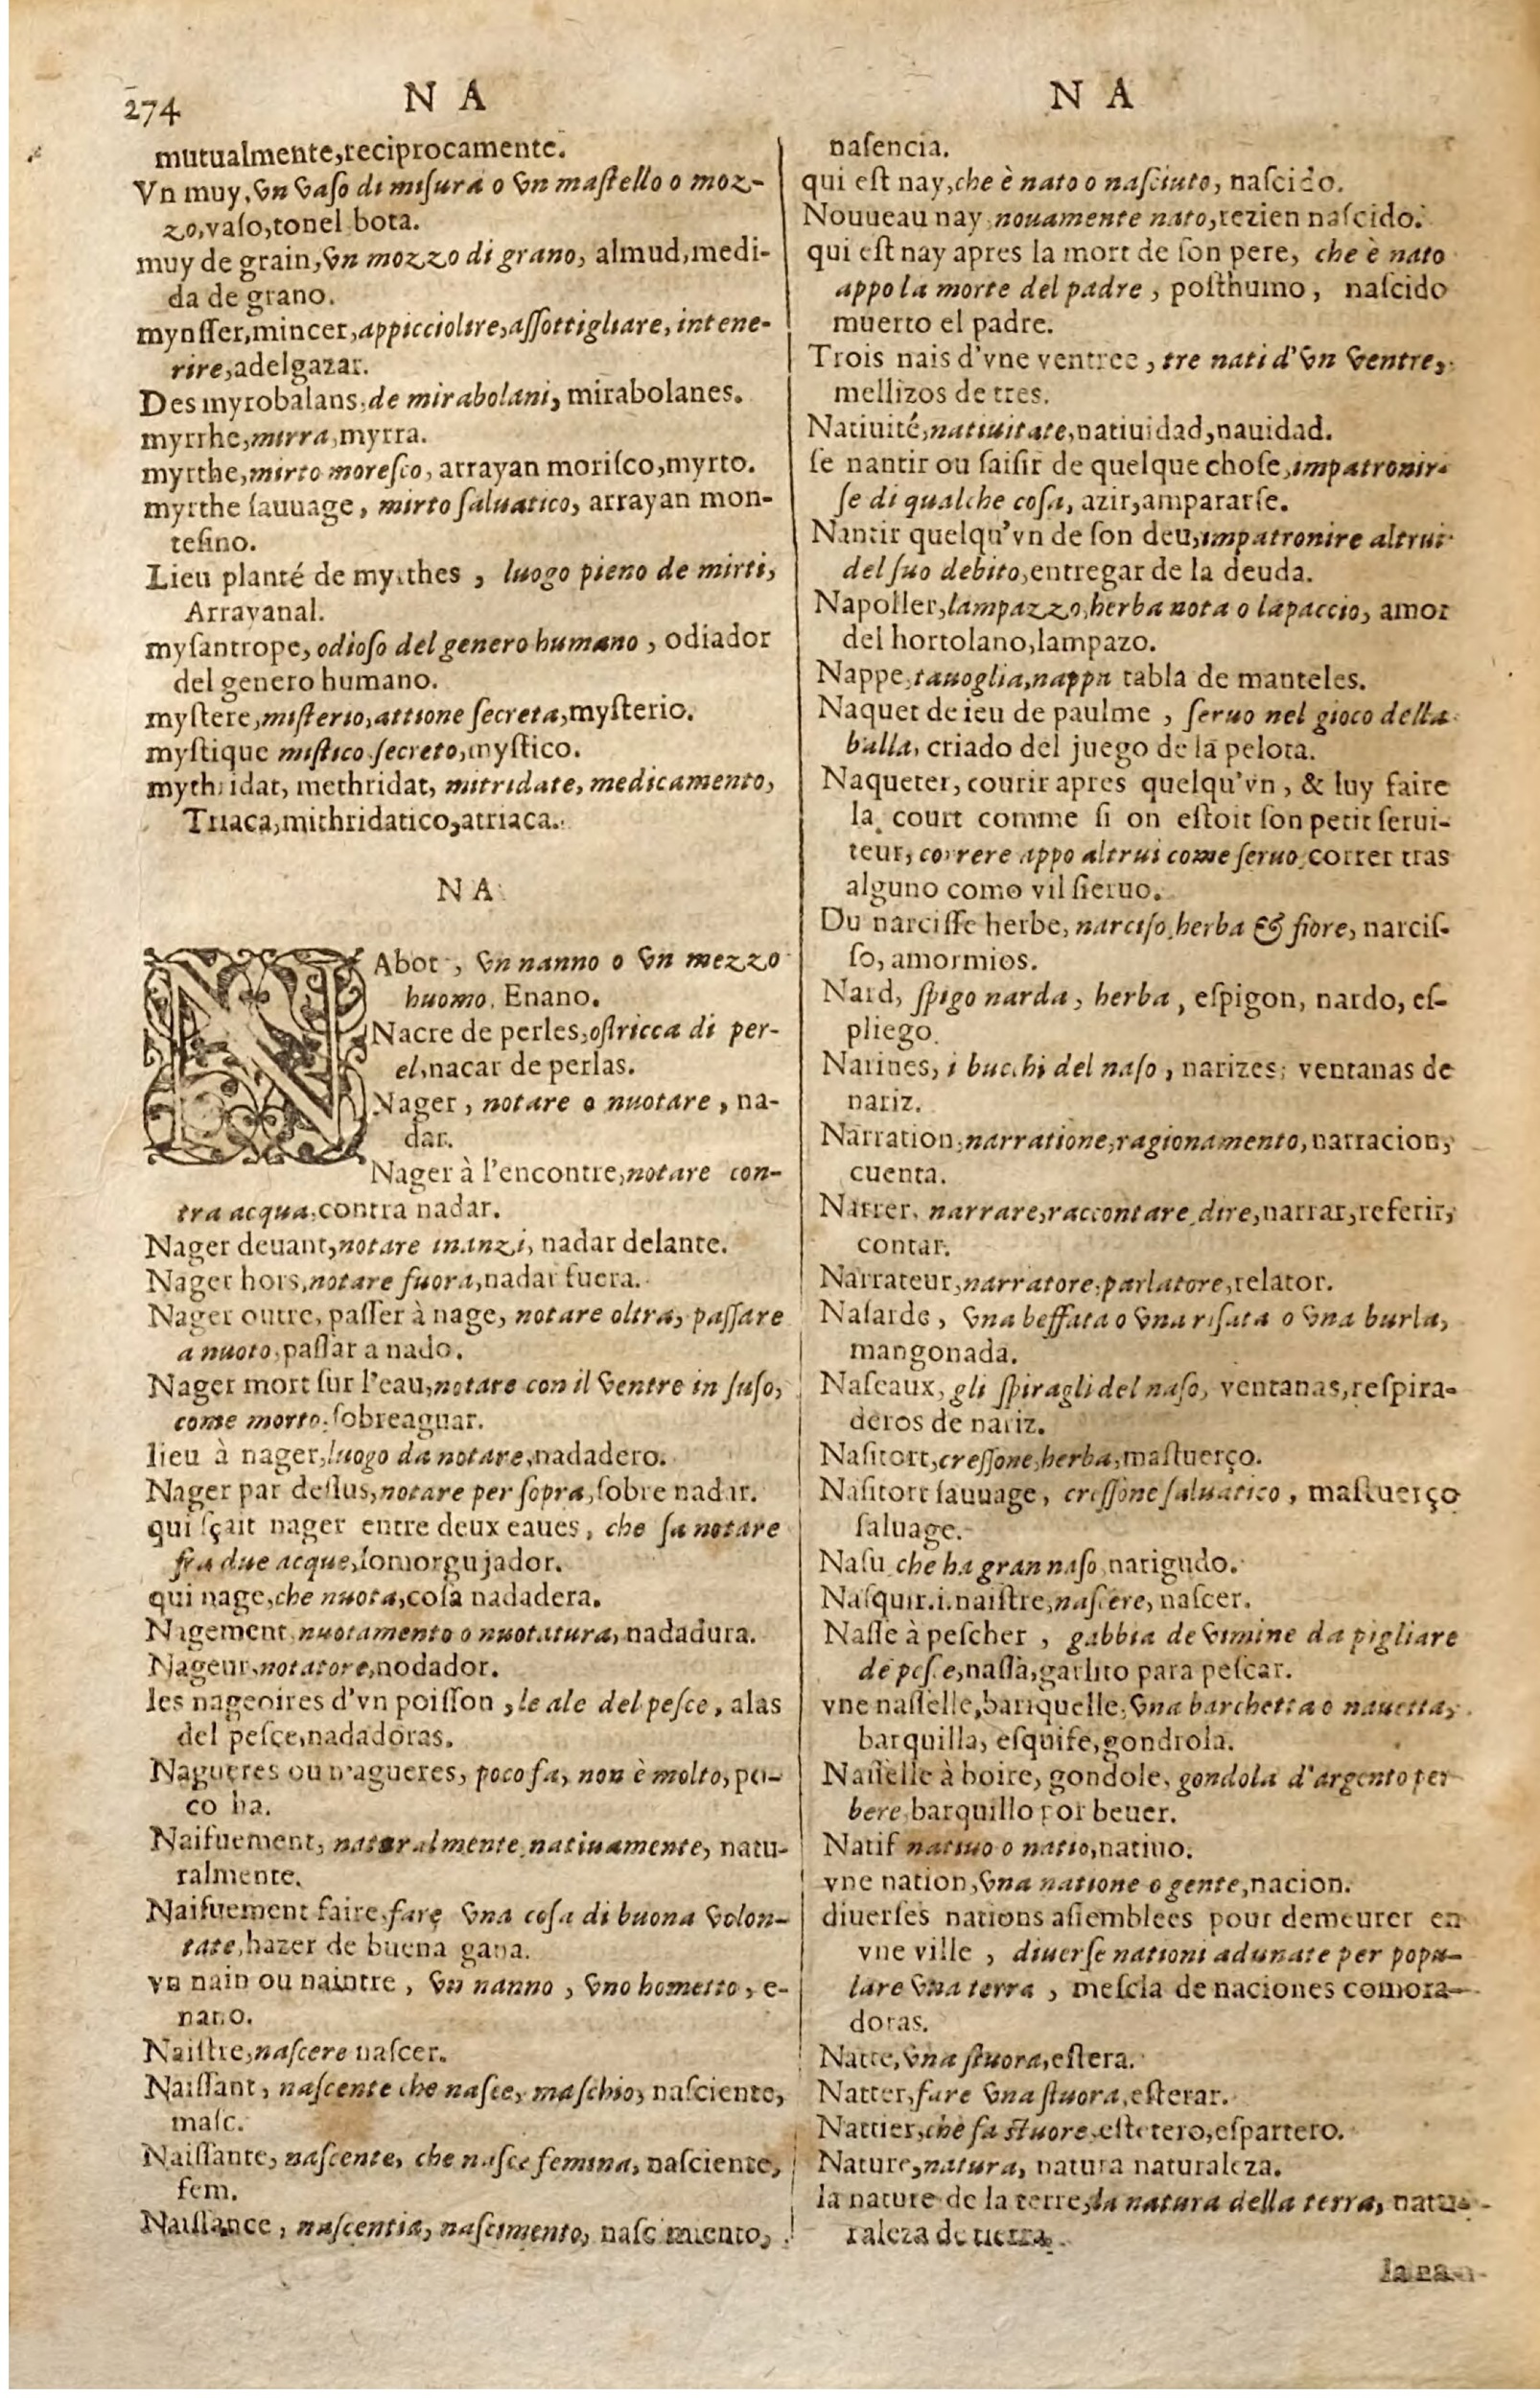 274 N A N A
mutualmente,reciprocamente.
Vn muy, vn vaſo di miſura o vn maſtello o moz-
zo,vaſo,tonel bota.
muy de grain,vn mozzo di grano, almud,medi-
da de grano.
mynſſer,mincer,appicciolire,aſſottigliare, intene-
rire,adelgazar.
Des myrobalans,de mirabolani, mirabolanes.
myrrhe,mirra,myrra.
myrthe,mirto moreſco, arrayan moriſco,myrto.
myrthe ſauuage, mirto ſaluatico, arrayan mon-
teſino.
Lieu planté de myrthes , luogo pieno de mirti,
Arrayanal.
myſantrope, odioſo del genero humano , odiador
del genero humano.
myſtere,miſterio,attione ſecreta,myſterio.
myſtique miſtico ſecreto,myſtico.
mythridat, methridat, mitridate, medicamento,
Triaca,mithridatico,atriaca.
N A
NAbot , vn nanno o vn mezzo
huomo, Enano.
Nacre de perles,oſtricca di per-
el,nacar de perlas.
Nager , notare o nuotare , na-
dar.
Nager à l'encontre,notare con-
tra acqua,contra nadar.
Nager deuant,notare inanzi, nadar delante.
Nager hors,notare fuora,nadar fuera.
Nager outre, paſſer à nage, notare oltra, paſſare
a nuoto,paſſar a nado.
Nager mort ſur l'eau,notare con il ventre in ſuſo,
come morto,ſobreaguar.
lieu à nager,luogo da notare,nadadero.
Nager par deſſus,notare per ſopra,ſobre nadar.
qui ſçait nager entre deux eaues, che ſa notare
fra due acque,ſomorgujador.
qui nage,che nuota,coſa nadadera.
Nagement nuotamento o nuotatura, nadadura.
Nageur,notatore,nodador.
les nageoires d'vn poiſſon ,le ale del peſce, alas
del peſce,nadadoras.
Nagueres ou n'agueres, poco fa, non è molto, po-
co ha.
Naifuement, naturalmente,natiuamente, natu-
ralmente.
Naifuement faire,fare vna coſa di buona volon-
tate,hazer de buena gana.
vn nain ou naintre , vn nanno , vno hometto, e-
nano.
Naiſtre,naſcere naſcer.
Naiſſant, naſcente che naſce, maſchio, naſciente,
maſc.
Naiſſante, naſcente, che naſce femina, naſciente,
fem.
Naiſſance , naſcentia, naſcimento, naſcimiento,
naſencia.
qui eſt nay,che è nato o naſciuto, naſcido.
Nouueau nay nouamente nato,rezien naſcido.
qui eſt nay apres la mort de ſon pere, che è nato
appo la morte del padre , poſthumo , naſcido
muerto el padre.
Trois nais d'vne ventree , tre nati d'vn ventre,
mellizos de tres.
Natiuité,natiuitate,natiuidad,nauidad.
ſe nantir ou ſaiſir de quelque choſe,impatronir-
ſe di qualche coſa, azir,ampararſe.
Nantir quelqu'vn de ſon deu,impatronire altrui
del ſuo debito,entregar de la deuda.
Napoller,lampazzo,herba nota o lapaccio, amor
del hortolano,lampazo.
Nappe,tauoglia,nappa tabla de manteles.
Naquet de ieu de paulme , ſeruo nel gioco della
balla, criado del juego de la pelota.
Naqueter, courir apres quelqu'vn , & luy faire
la court comme ſi on eſtoit ſon petit ſerui-
teur, correre appo altrui come ſeruo,correr tras
alguno como vil ſieruo.
Du narciſſe herbe, narciſo,herba & fiore, narciſ-
ſo, amormios.
Nard, ſpigo narda , herba , eſpigon, nardo, eſ-
pliego.
Narines, i bucchi del naſo , narizes, ventanas de
nariz.
Narration,narratione,ragionamento,narracion,
cuenta.
Narrer, narrare,raccontare,dire,narrar,referir,
contar.
Narrateur,narratore,parlatore,relator.
Naſarde , vna beffata o vna riſata o vna burla,
mangonada.
Naſeaux, gli ſpiragli del naſo, ventanas,reſpira-
deros de nariz.
Naſitort,creſſone,herba,maſtuerço.
Naſitort ſauuage, creſſone ſaluatico , maſtuerço
ſaluage.
Naſu che ha gran naſo,narigudo.
Naſquir.i.naiſtre,naſcere, naſcer.
Naſſe à peſcher , gabbia de vimine da pigliare
de peſce,naſſa,garlito para peſcar.
vne naſſelle,bariquelle,vna barchetta o nauetta,
barquilla, eſquife,gondrola.
Naſſelle à boire, gondole, gondola d'argento per
bere,barquillo por beuer.
Natif natiuo o natio,natiuo.
vne nation,vna natione o gente,nacion.
diuerſes nations aſſemblees pour demeurer en
vne ville , diuerſe nationi adunate per popu-
lare vna terra , meſcla de naciones comora-
doras.
Natte,vna ſtuora,eſtera.
Natter,fare vna ſtuora,eſterar.
Nattier,che fa ſtuore,eſterero,eſpartero.
Nature,natura, natura naturaleza.
la nature de la terre,la natura della terra, natu-
raleza de tierra.
la na-